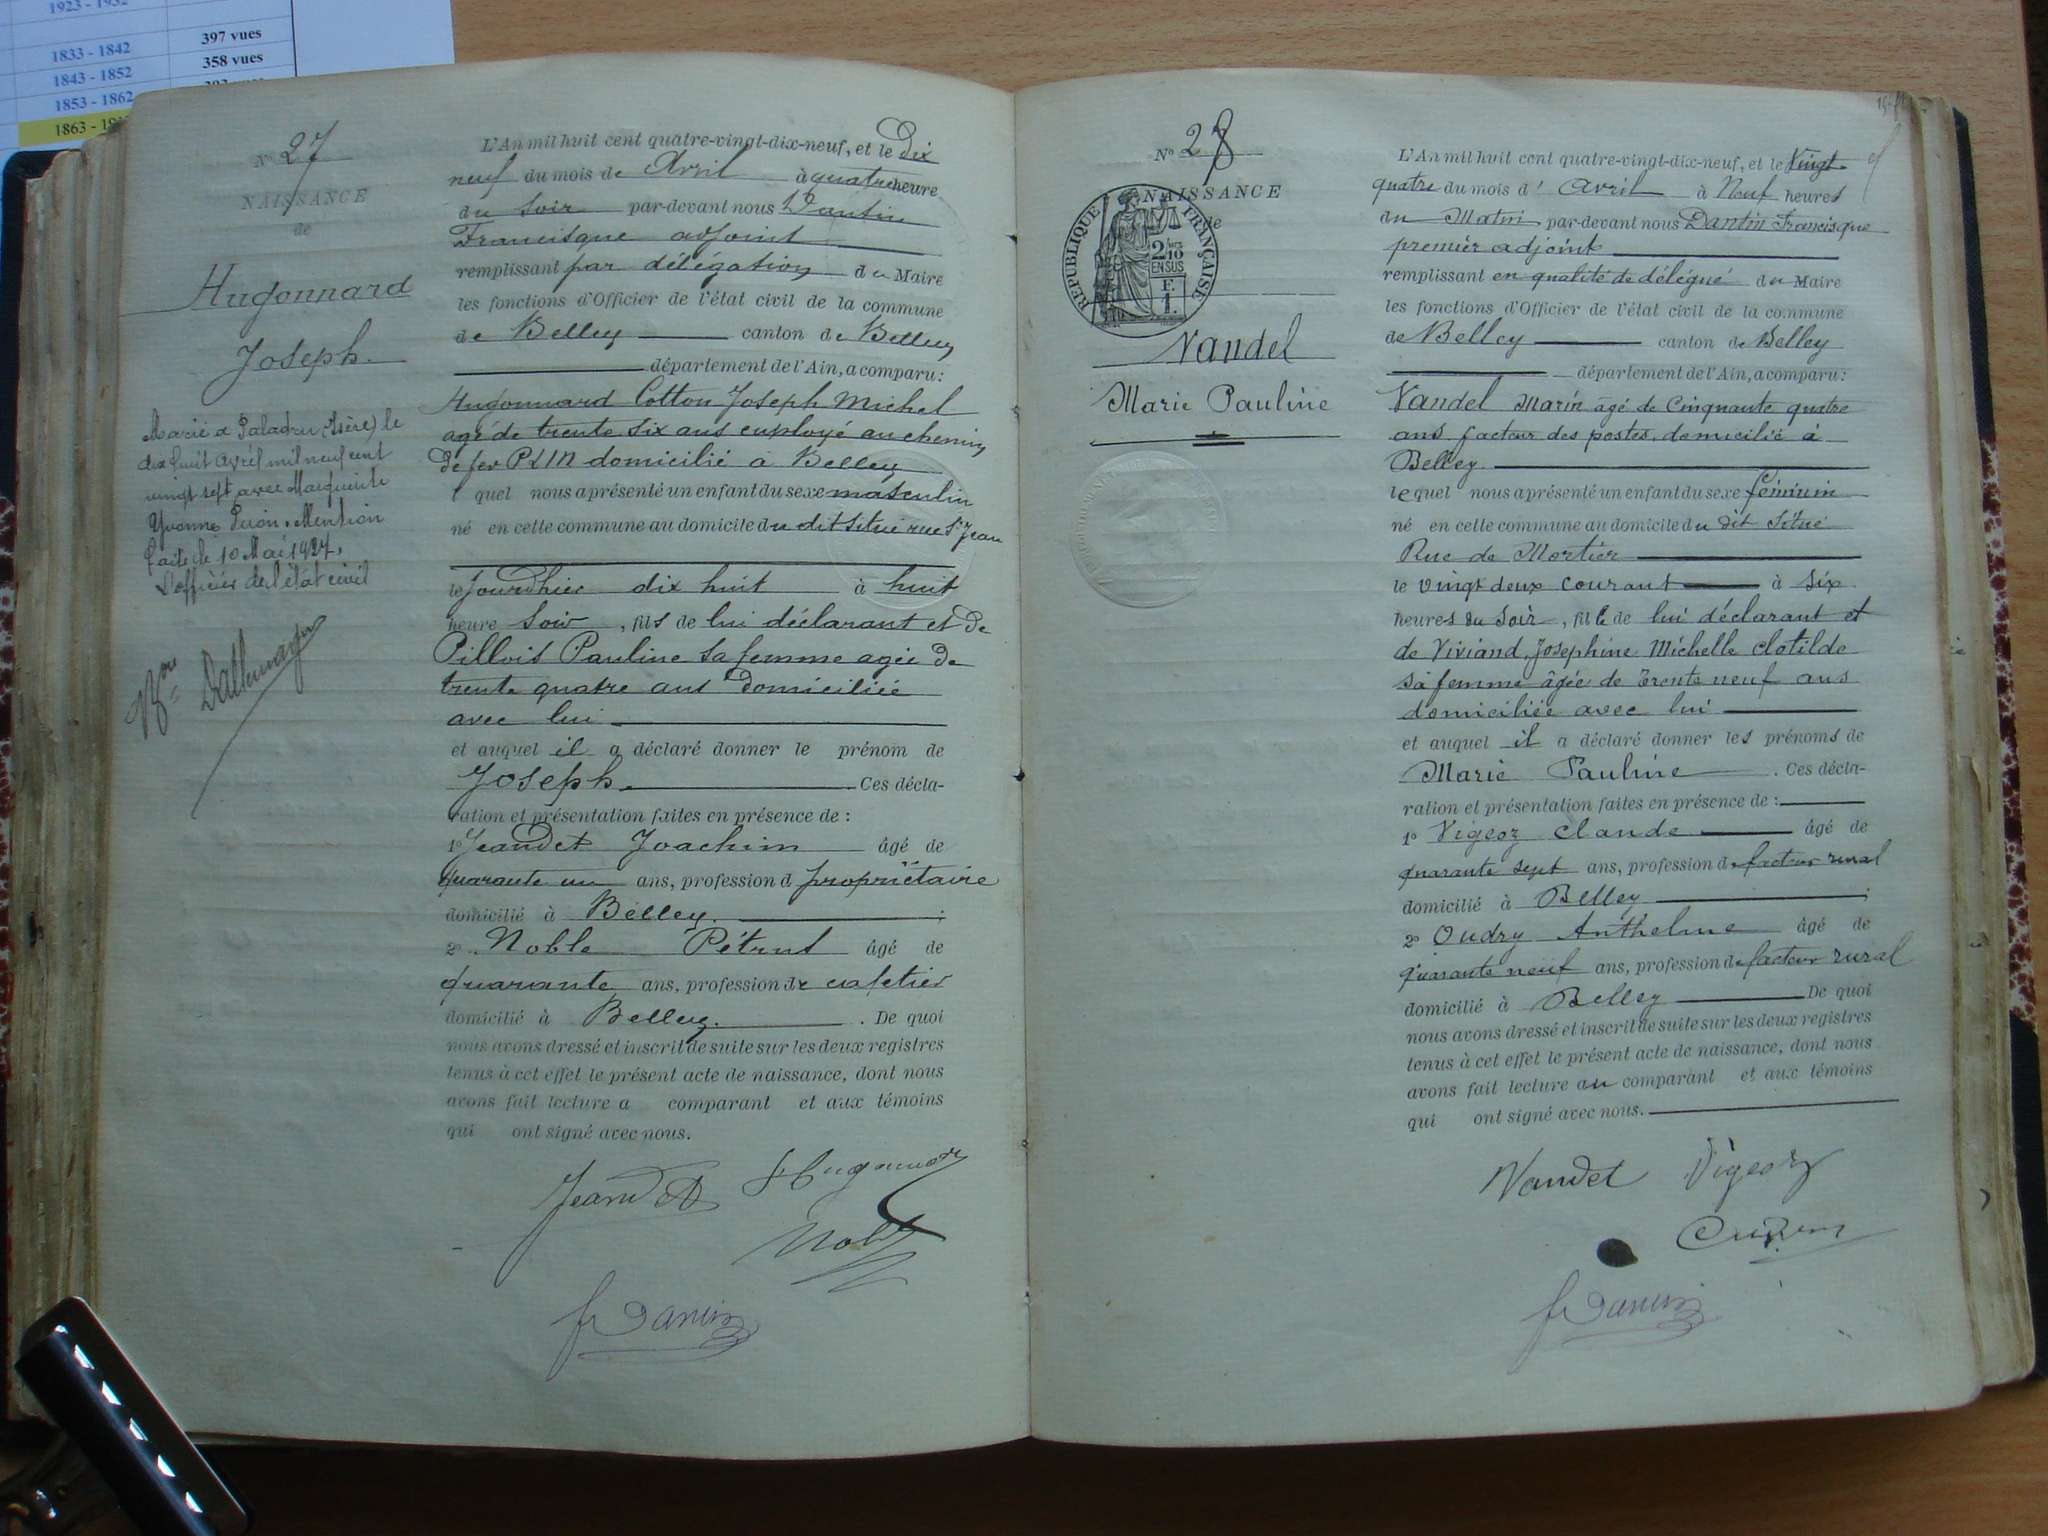 1833 - 1842 397 vues
1843 - 1852 358 vues
1853 - 1862
1863 - 
N° 27
NAISSANCE
de
Hugonnard
Joseph.
Marié à Paladru (Isère) le
dix huit avril mil neuf cent
vingt sept avec Marguerite
Yvonne . Mention
faite le 10 Mai 1927,
L'officier de l'état civil
L'An mil huit cent quatre-vingt-dix-neuf, et le Dix
neuf du mois de Avril à quatre heure
du soir par-devant nous Dantin
Francisque adjoint
remplissant par délégation du Maire
les fonctions d'Officier de l'état civil de la commune
de Belley canton de Belley
département de l'Ain, a comparu:
Hugonnard Cotton Joseph Michel
agé de trente six ans employé au chemin
de fer PLM domicilié à Belley
l quel nous a présenté un enfant du sexe masculin
né en cette commune au domicile du dit situé rue St Jean
le jourdhier dix huit à huit
heure soir, fils de lui déclarant et de
Pillois Pauline sa femme agée de
trente quatre ans domiciliée
avec lui
et auquel il a déclaré donner le prénom de
Joseph. Ces décla-
ration et présentation faites en présence de :
1° Jeandet Joachim âgé de
quarante un ans, profession d propriétaire
domicilié à Belley. ;
2° Noble Pétrus âgé de
quarante ans, profession de cafetier
domicilié à Belley. . De quoi
nous avons dressé et inscrit de suite sur les deux registres
tenus à cet effet le présent acte de naissance, dont nous
avons fait lecture a comparant et aux témoins
qui ont signé avec nous.
Jeandet Hugonnard
Noble
f Dantin
N° 28
NAISSANCE
de
RÉPUBLIQUE FRANÇAISE
2/10
EN SUS
F.
1.
Vandel
Marie Pauline
L'An mil huit cent quatre-vingt-dix-neuf, et le Vingt-
quatre du mois d' Avril à Neuf heures
du Matin par-devant nous Dantin Francisque
premier adjoint
remplissant en qualité de délégué du Maire
les fonctions d'Officier de l'état civil de la commune
de Belley canton de Belley
département de l'Ain, a comparu:
Vandel Marin âgé de Cinquante quatre
ans facteur des postes domicilié à
Belley.
lequel nous a présenté un enfant du sexe féminin
né en cette commune au domicile du dit Situé
Rue de Mortier
le vingt deux courant à six
heures du Soir, fille de lui déclarant et
de Viviand, Josephine Michelle Clotilde
sa femme âgée de Trente neuf ans
domiciliée avec lui
et auquel il a déclaré donner les prénoms de
Marie Pauline . Ces décla-
ration et présentation faites en présence de :
1° Vigeoz Claude âgé de
quarante sept ans, profession de facteur rural
domicilié à Belley ;
2° Oudry Anthelme âgé de
quarante neuf ans, profession de facteur rural
domicilié à Belley De quoi
nous avons dressé et inscrit de suite sur les deux registres
tenus à cet effet le présent acte de naissance, dont nous
avons fait lecture au comparant et aux témoins
qui ont signé avec nous.
Vandel Vigeoz
f Dantin